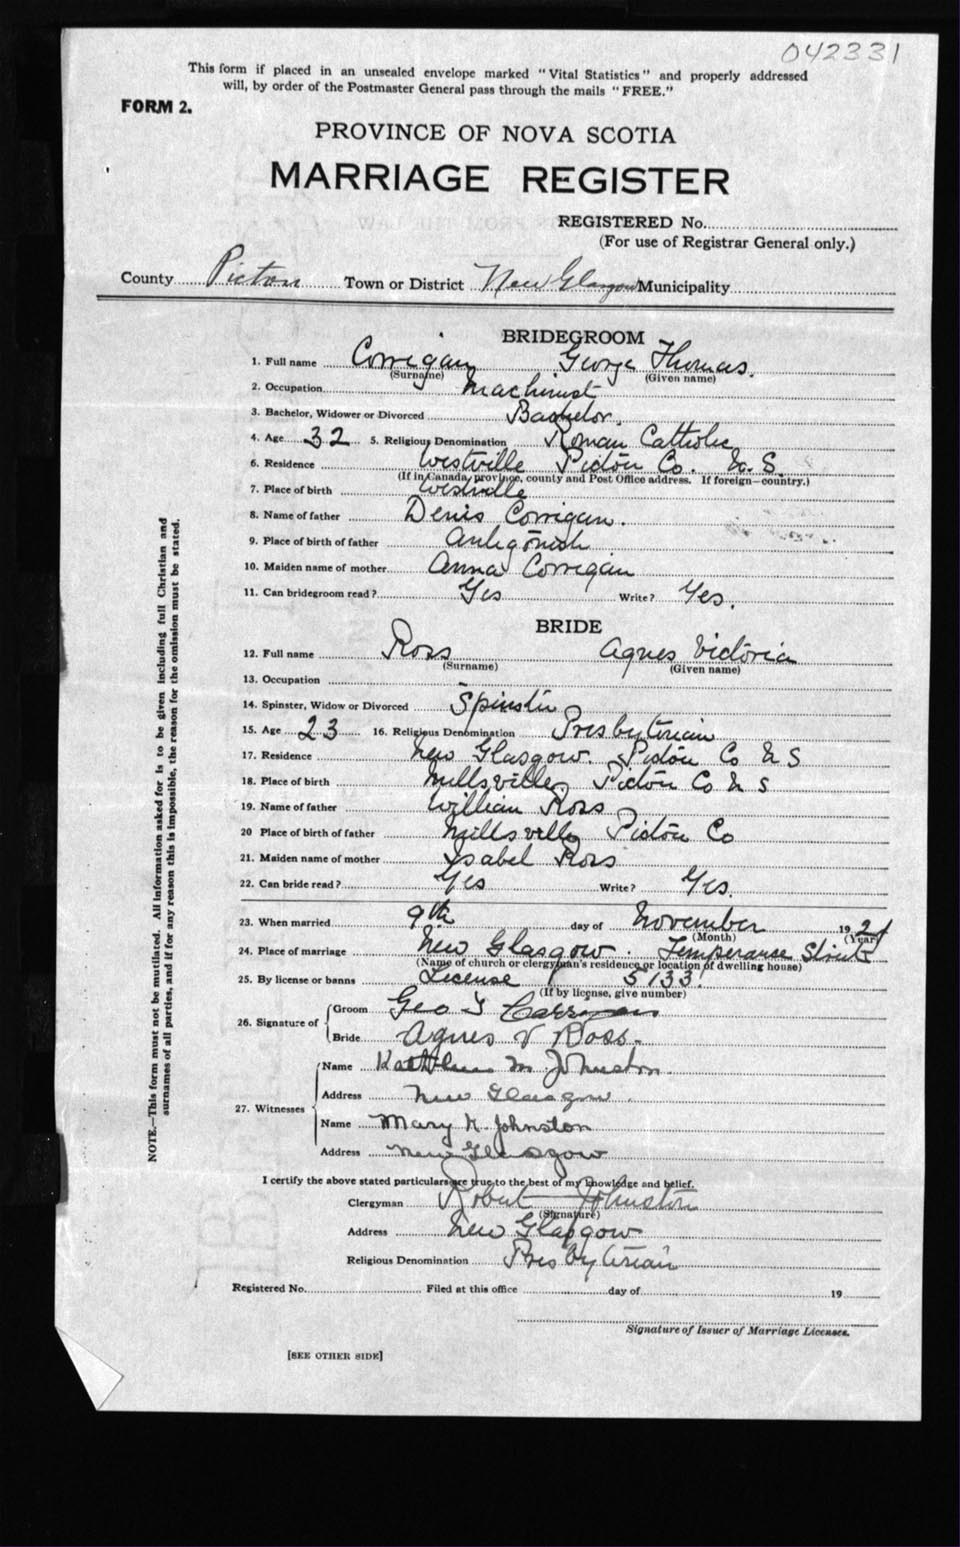 042331
This form if placed in an unsealed envelope marked "Vital Statistics" and properly addressed
will, by order of the Postmaster General pass through the mails "FREE."
FORM 2.
PROVINCE OF NOVA SCOTIA
MARRIAGE REGISTER
REGISTERED No.
(For use of Registrar General only.)
County Pictou Town or District New Glasgow Municipality
BRIDEGROOM
1. Full name Corrigan George Thomas.
(Surname) (Given name)
2. Occupation Machinist
3. Bachelor, Widower or Divorced Bachelor.
4. Age 32 5. Religious Denomination Roman Catholic
6. Residence Westville Pictou Co. N.S.
(If in Canada, province, county and Post Office address. If foreign—country.)
7. Place of birth Westville
8. Name of father Denis Corrigan.
9. Place of birth of father Antigonish
10. Maiden name of mother Anna Corrigan
11. Can bridegroom read? Yes Write? Yes.
BRIDE
12. Full name Ross Agnes Victoria
(Surname) (Given name)
13. Occupation
14. Spinster, Widow or Divorced Spinster
15. Age 23 16. Religious Denomination Presbyterian
17. Residence New Glasgow. Pictou Co N S
18. Place of birth Millsville Pictou Co N S
19. Name of father William Ross
20 Place of birth of father Millsville Pictou Co
21. Maiden name of mother Isabel Ross
22. Can bride read? Yes Write? Yes.
23. When married 9th day of November 1921
(Month) (Year)
24. Place of marriage New Glasgow. Temperance Street
(Name of church or clergyman's residence or location of dwelling house)
25. By license or banns License 5133.
(If by license, give number)
26. Signature of Groom Geo T Corrigan
Bride Agnes V Ross.
27. Witnesses Name Kathleen M Johnston
Address New Glasgow.
Name Mary K. Johnston
Address New Glasgow
I certify the above stated particulars are true to the best of my knowledge and belief.
Clergyman Robert Johnston
(Signature)
Address New Glasgow
Religious Denomination Presbyterian
Registered No. Filed at this office day of 19
Signature of Issuer of Marriage Licenses.
[SEE OTHER SIDE]
NOTE.—This form must not be mutilated. All information asked for is to be given including full Christian and
surnames of all parties, and if for any reason this is impossible, the reason for the omission must be stated.